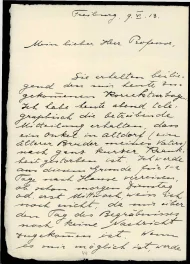 Freiburg, 9. VI. 13.
Mein lieber Herr Professor,
Sie erhalten beilie-
gend den mir heute zu-
gekommenen Korrekturbogen.
Ich habe heute abend tele-
graphisch die betrübende
Mitteilung erhalten, dass
ein Onkel in Altdorf (ein
älterer Bruder meines Vaters)
nach ganz kurzer Krank-
heit gestorben ist. Ich werde
aus diesem Grunde für 1-2
Tage nach Hause verreisen,
ob schon morgen Dienstag
ob erst Mittwoch weiss ich
noch nicht, da mir über
den Tag des Begräbnisses
noch keine Nachricht
zugekommen ist. Wenn
es mir möglich ist werde